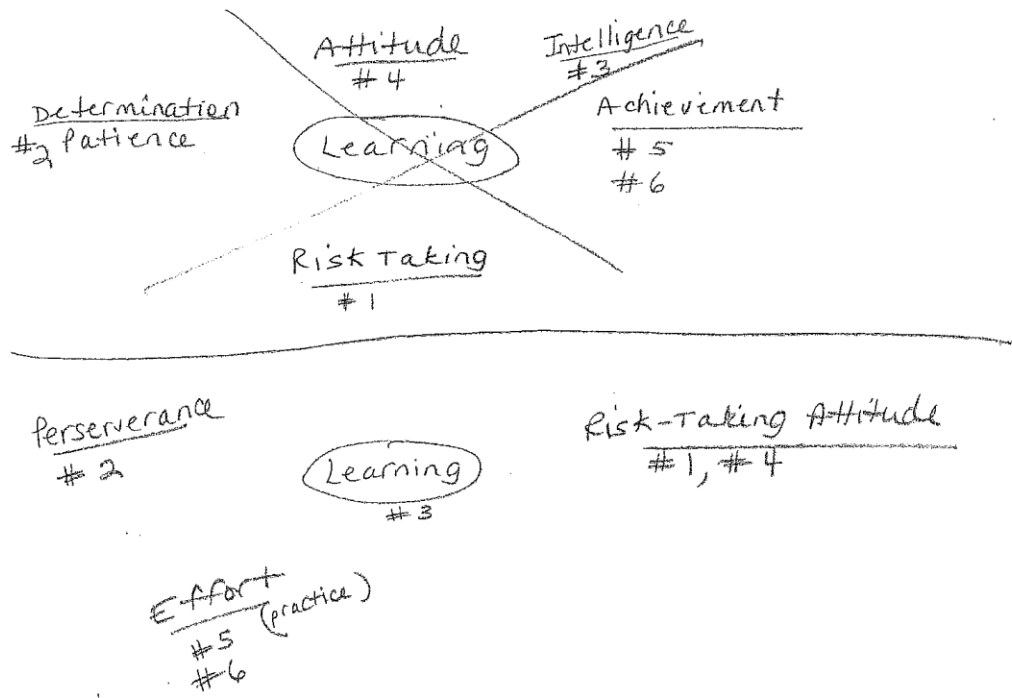 Attitude
# 4
Intelligence
# 3
Determination
#2 Patience
Learning
Achievement
# 5
# 6
Risk Taking
# 1
Perserverance
# 2
Learning
# 3
Risk-Taking Attitude
# 1, # 4
Effort
(practice)
# 5
# 6